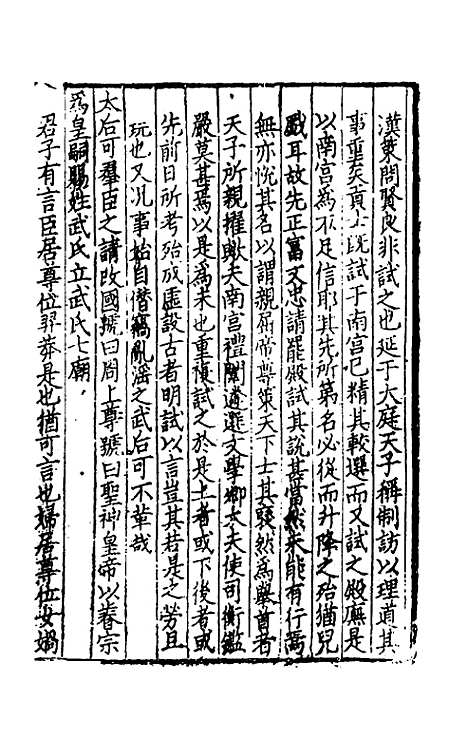 漢策問賢良非試之也延于大庭天子稱制訪以理道其
事重矣貢士既試于南宮已精其較選而又試之殿廡是
以南宮爲不足信耶其先所第名必從而升降之殆猶兒
戲耳故先正富文忠請罷殿試其說甚當然未能有行焉
無亦恱其名以謂親屈帝尊策天下士其裒然爲舉首者
天子所親擢歟夫南宮禮闈遴選文學鄉大夫使司衡鑑
嚴莫甚焉以是爲未也重複試之於是上者或下後者或
先前日所考殆成虛設古者明試以言豈其若是之勞且
玩也又况事始自僭竊亂滛之武后可不革哉
太后可羣臣之請改國號曰周上尊號曰聖神皇帝以睿宗
爲皇嗣賜姓武氏立武氏七廟
君子有言臣居尊位羿莽是也猶可言也婦居尊位女媧